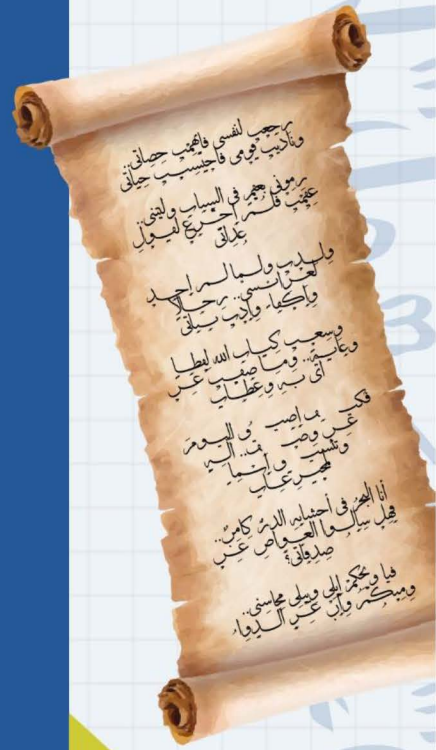 رجعت لنفسى فاتهمت حصاتى..
وناديت قومى فاحتسبت حياتى
رمونى بعقم فى الشباب وليتنى..
عقمت فلم أجزع لقول
عداتى
ولدت ولما لم أجد
لعرائسى.. رجالا
وأكفاء وأدت بناتى
وسعت كتاب الله لفظا
وغاية.. وما ضقت عن
آى به وعظات
فكيف أضيق اليوم
عن وصف آلة
وتنسيق
أنا البحر فى أحشائه الدر كامن..
فهل سألوا الغواص عن
صدفاتى؟
فيا ويحكم أبلى وتبلى محاسنى..
ومنكم وإن عز الدواء